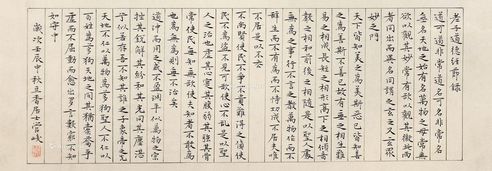 老子道德經節錄
道可道非常道名可名非常名
無名天地之始有名萬物之母常無
欲以觀其妙常有欲以觀其徼此兩
者同出而異名同謂之玄玄之又玄眾
妙之門
天下皆知美之為美斯惡已皆知善
之為善斯不善已故有無之相生難
易之相成長短之相形高下之相傾音
聲之相和前後之相隨是以聖人處
無為之事行不言之教萬物作而不
辭生而不有為而不恃功成不居夫唯
不居是以不去
不尚賢使民不爭不貴難得之貨使
民不為盜不見可欲使心不亂是以聖
人之治也虛其心實其腹弱其志強其骨
常使民無知無欲使夫知者不敢為
也為無為則無不治矣
道沖而用之或不盈淵乎似萬物之宗
挫其銳解其紛和其光同其塵湛
兮似若存吾不知其誰之子象帝之先
天地不仁以萬物為芻狗聖人不仁以
百姓為芻狗天地之間其猶橐籥乎
虛而不屈動而愈出多言數窮不
如守中
歲次壬辰中秋五香居士管峻